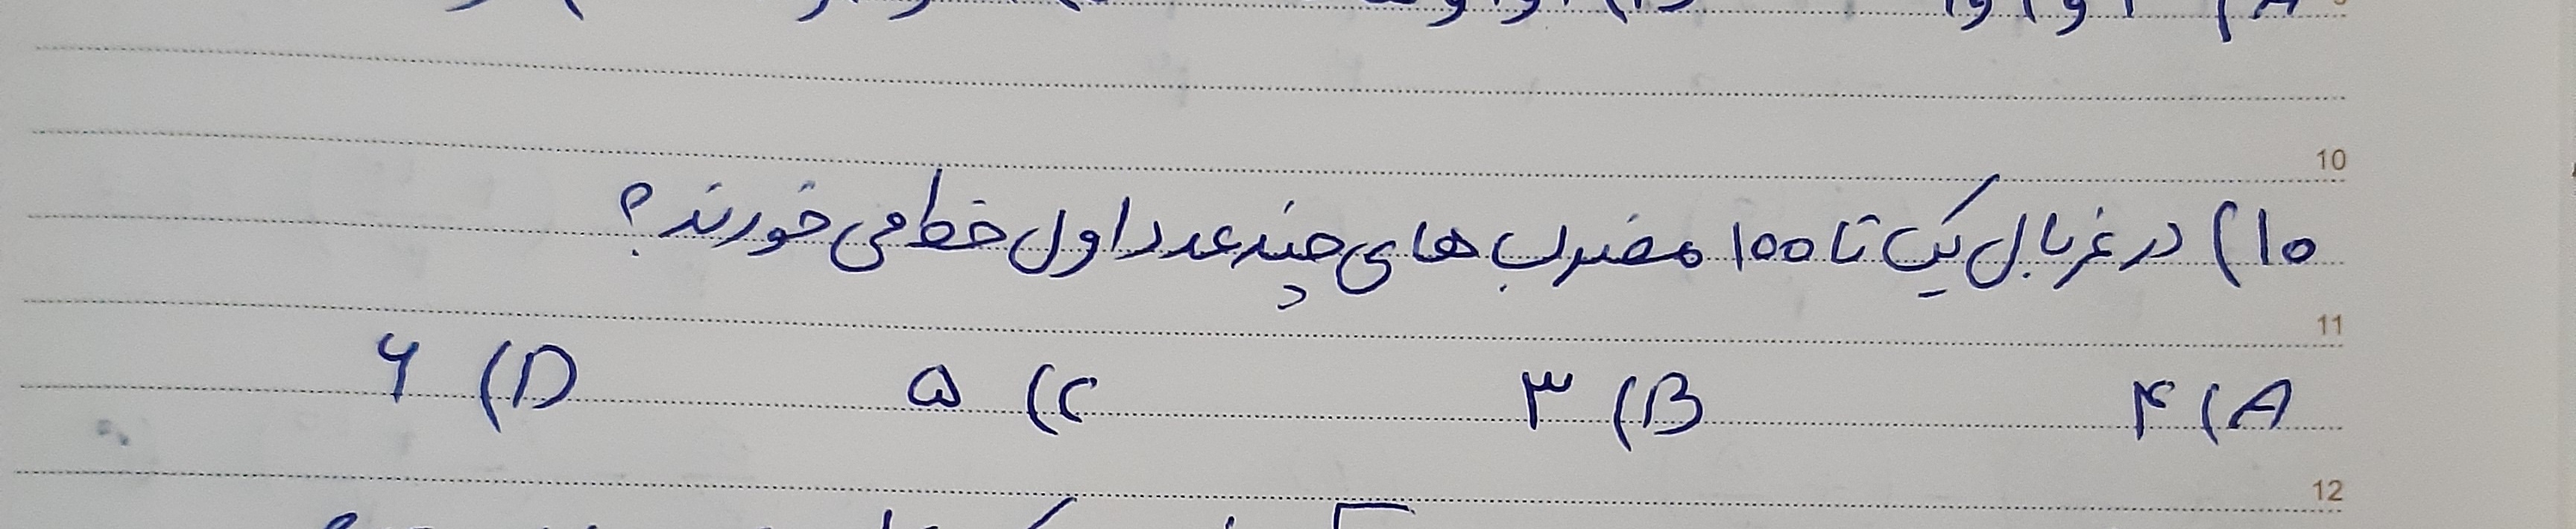 10
۱۰) در غربال یک تا ۱۰۰ مضرب های چند عدد اول خط می خورند؟
11
A) ۴ B) ۳ C) ۵ D) ۶
12